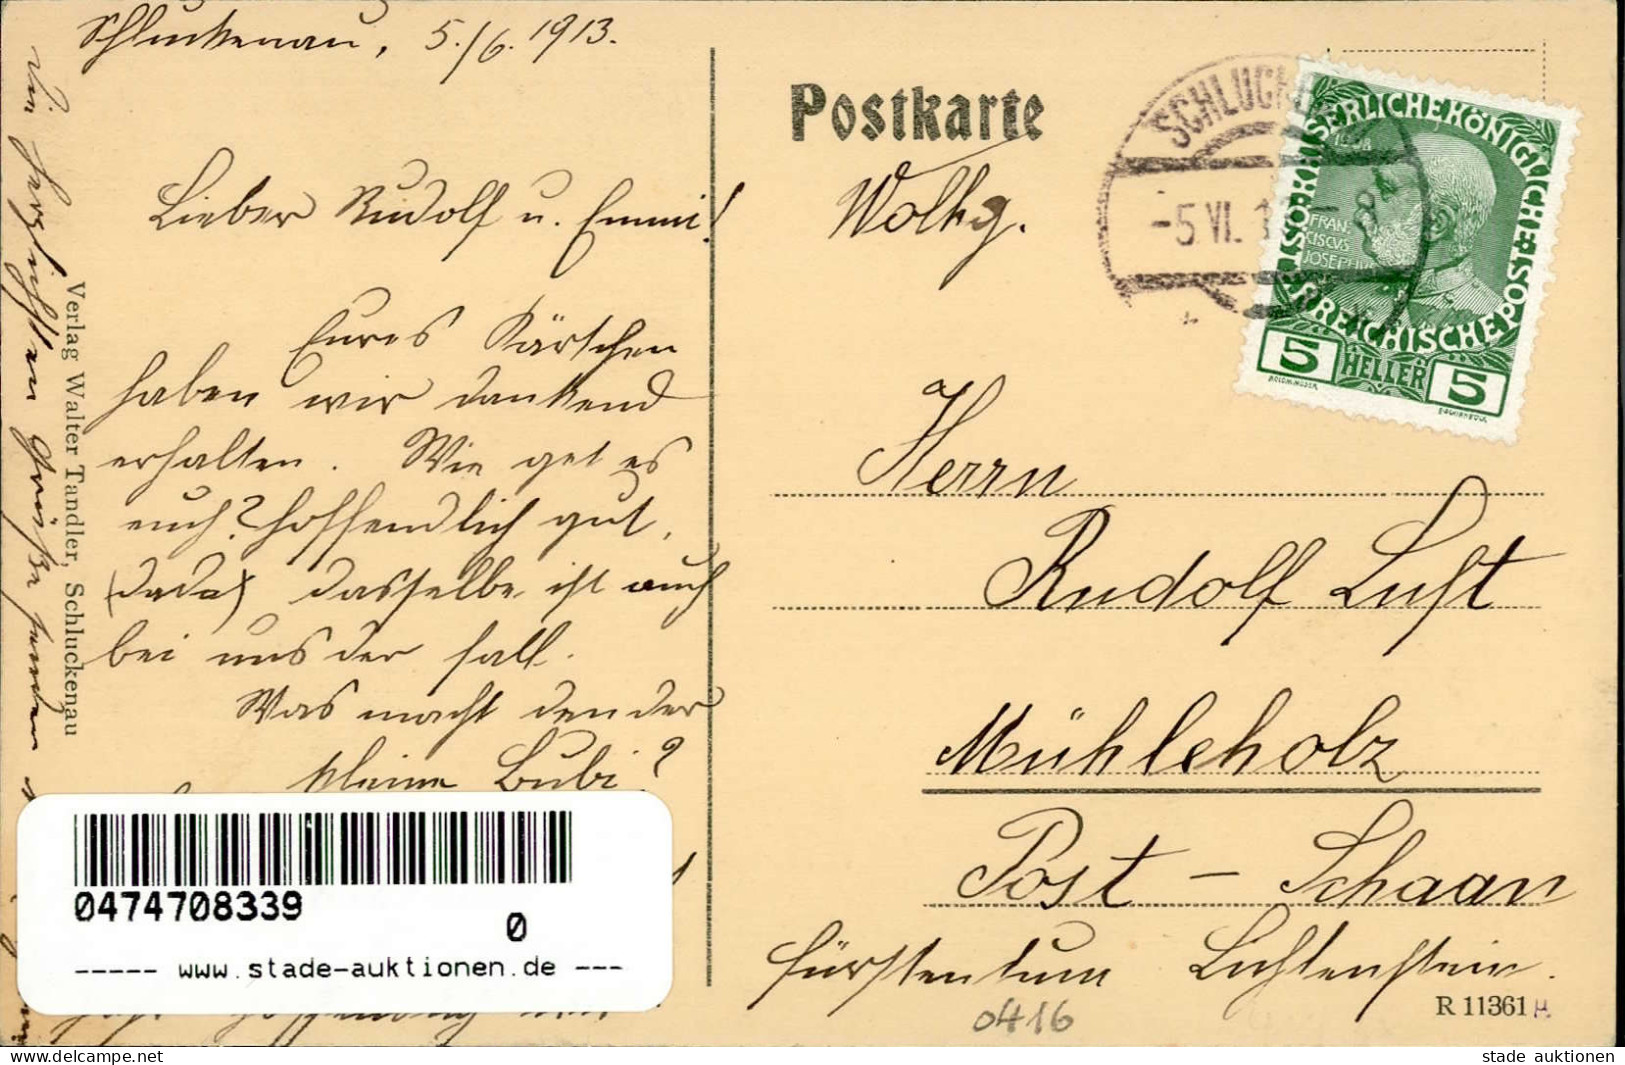 Schluckenau, 5./6. 1913.
Lieber Rudolf u. Emmi!
Eures Kärtchen
haben wir dankend
erhalten. Wie get es
euch? Hoffendlich gut,
(dada) dasselbe ist auch
bei uns der fall.
Was macht den der
kleine Bubi?
Hoffnung
herzlichsten Grüße senden
Verlag Walter Tandler, Schluckenau
Postkarte
SCHLUCK
-5 VI. 1
KAISERLICHE KÖNIGLICHE
ÖSTERREICHISCHE POST
1908
FRAN
CISCVS
JOSEPHI
5 HELLER 5
Herrn
Rudolf Luft
Mühleholz
Post - Schaan
Fürstentum Lichtenstein.
0416
R 11361
0474708339
0
----- www.stade-auktionen.de ---
www.delcampe.net
stade auktionen